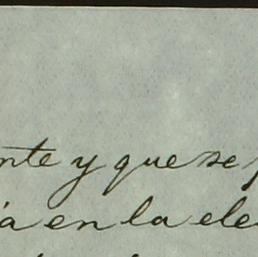 nte y que se
a en la ele